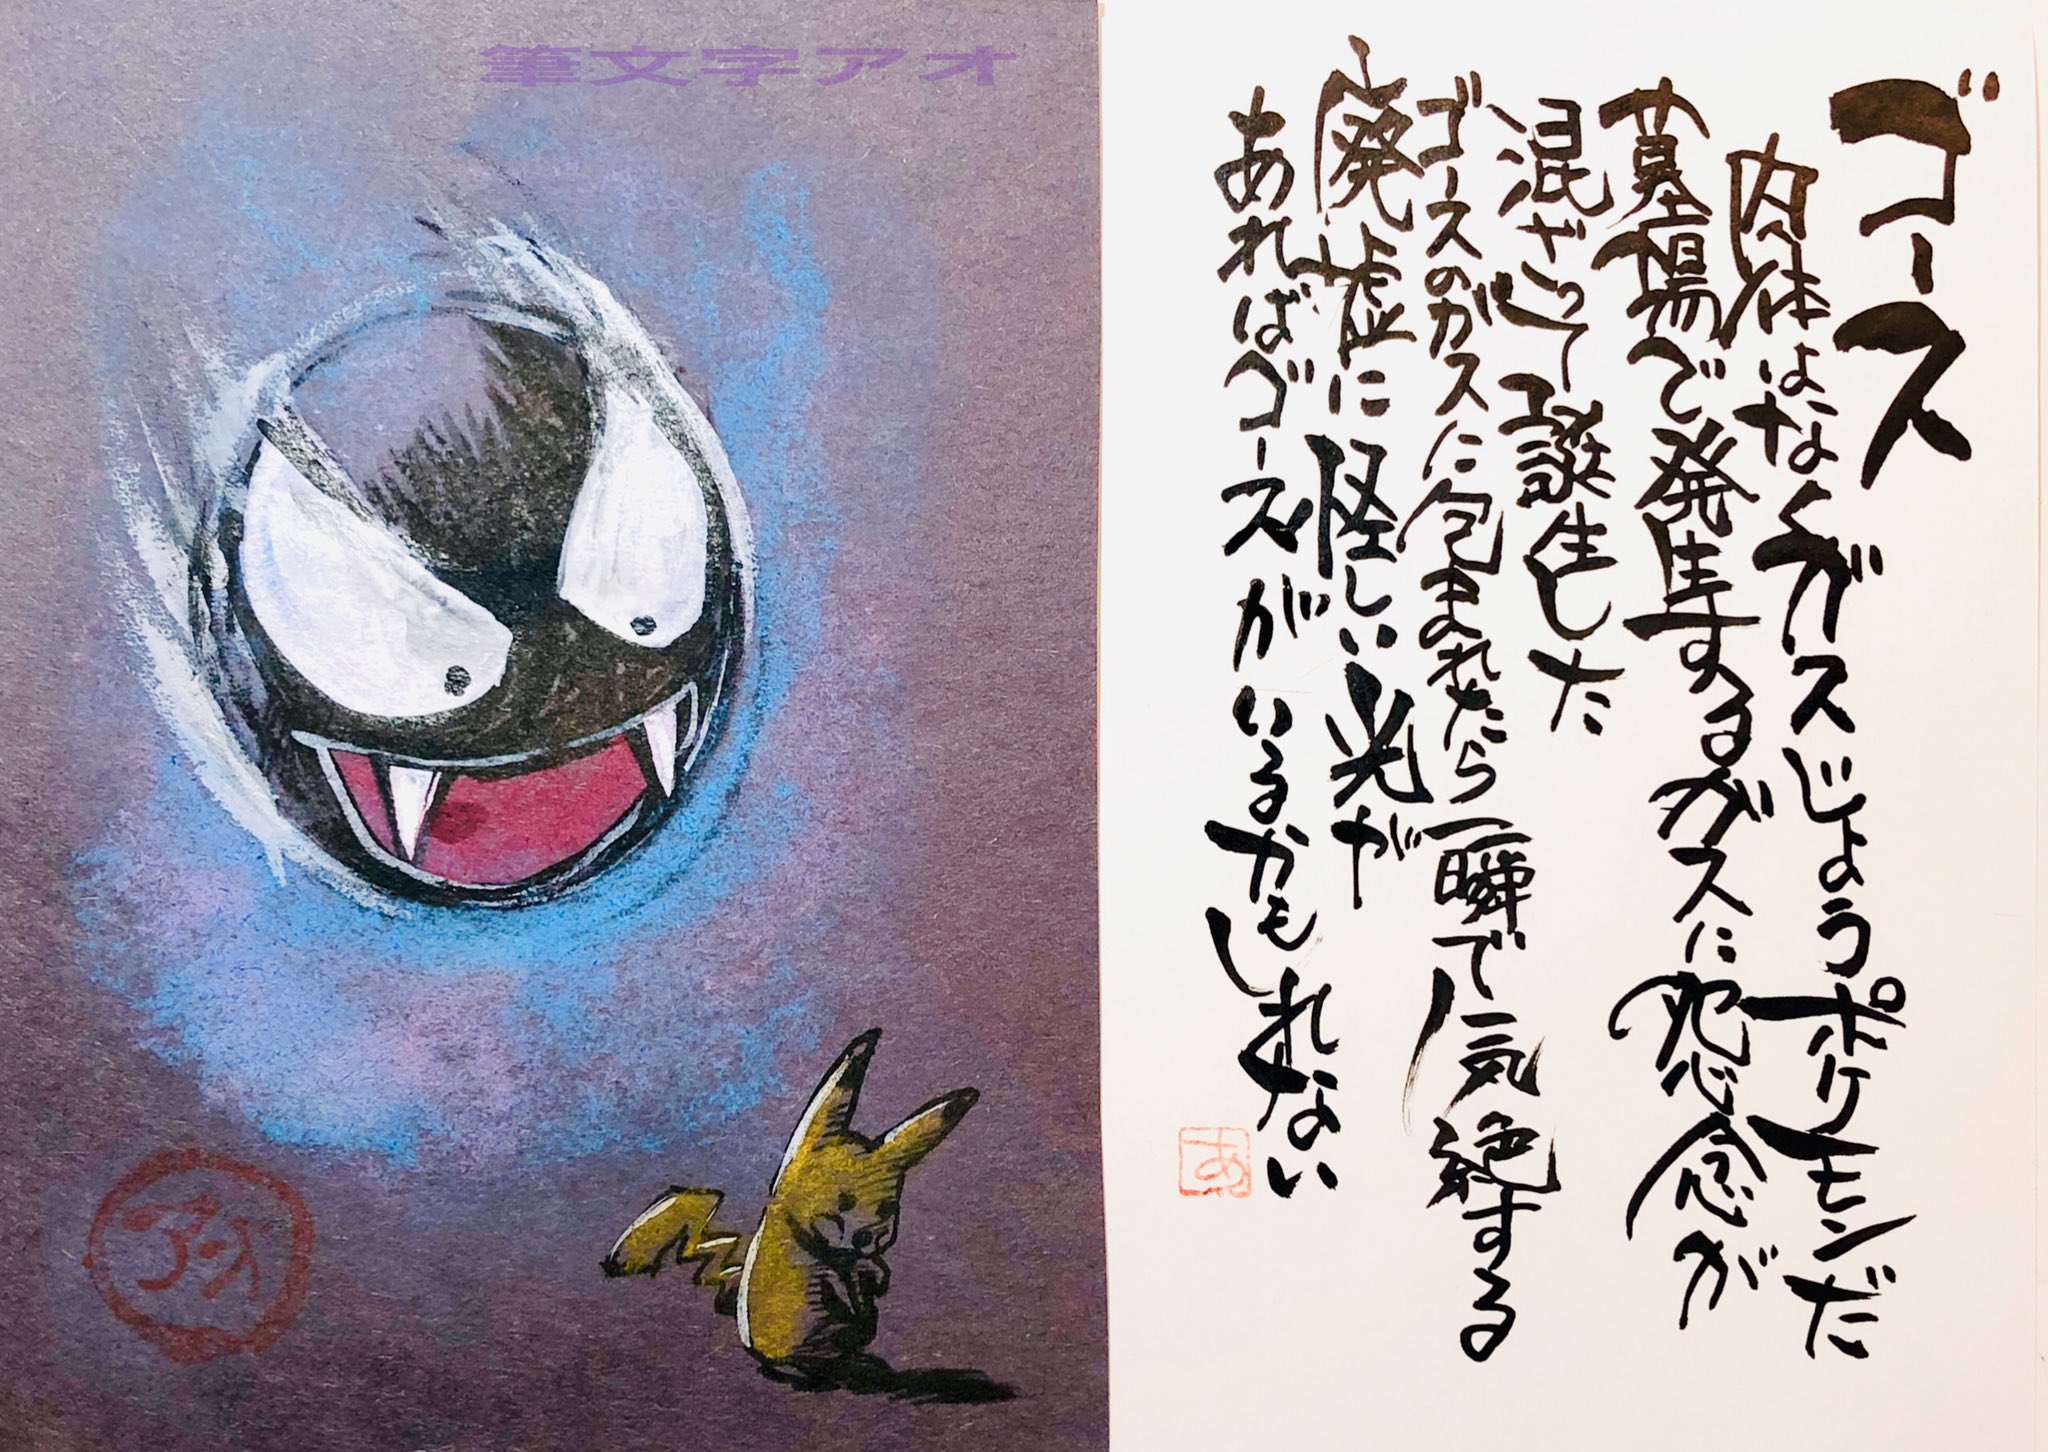 筆文字アオ
アオ
ゴース
肉体はなくガスじょうポケモンだ
墓場で発生するガスに怨念が
混ざって誕生した
ゴースのガスに包まれたら一瞬で気絶する
廃墟に怪しい光が
あればゴースがいるかもしれない
あ